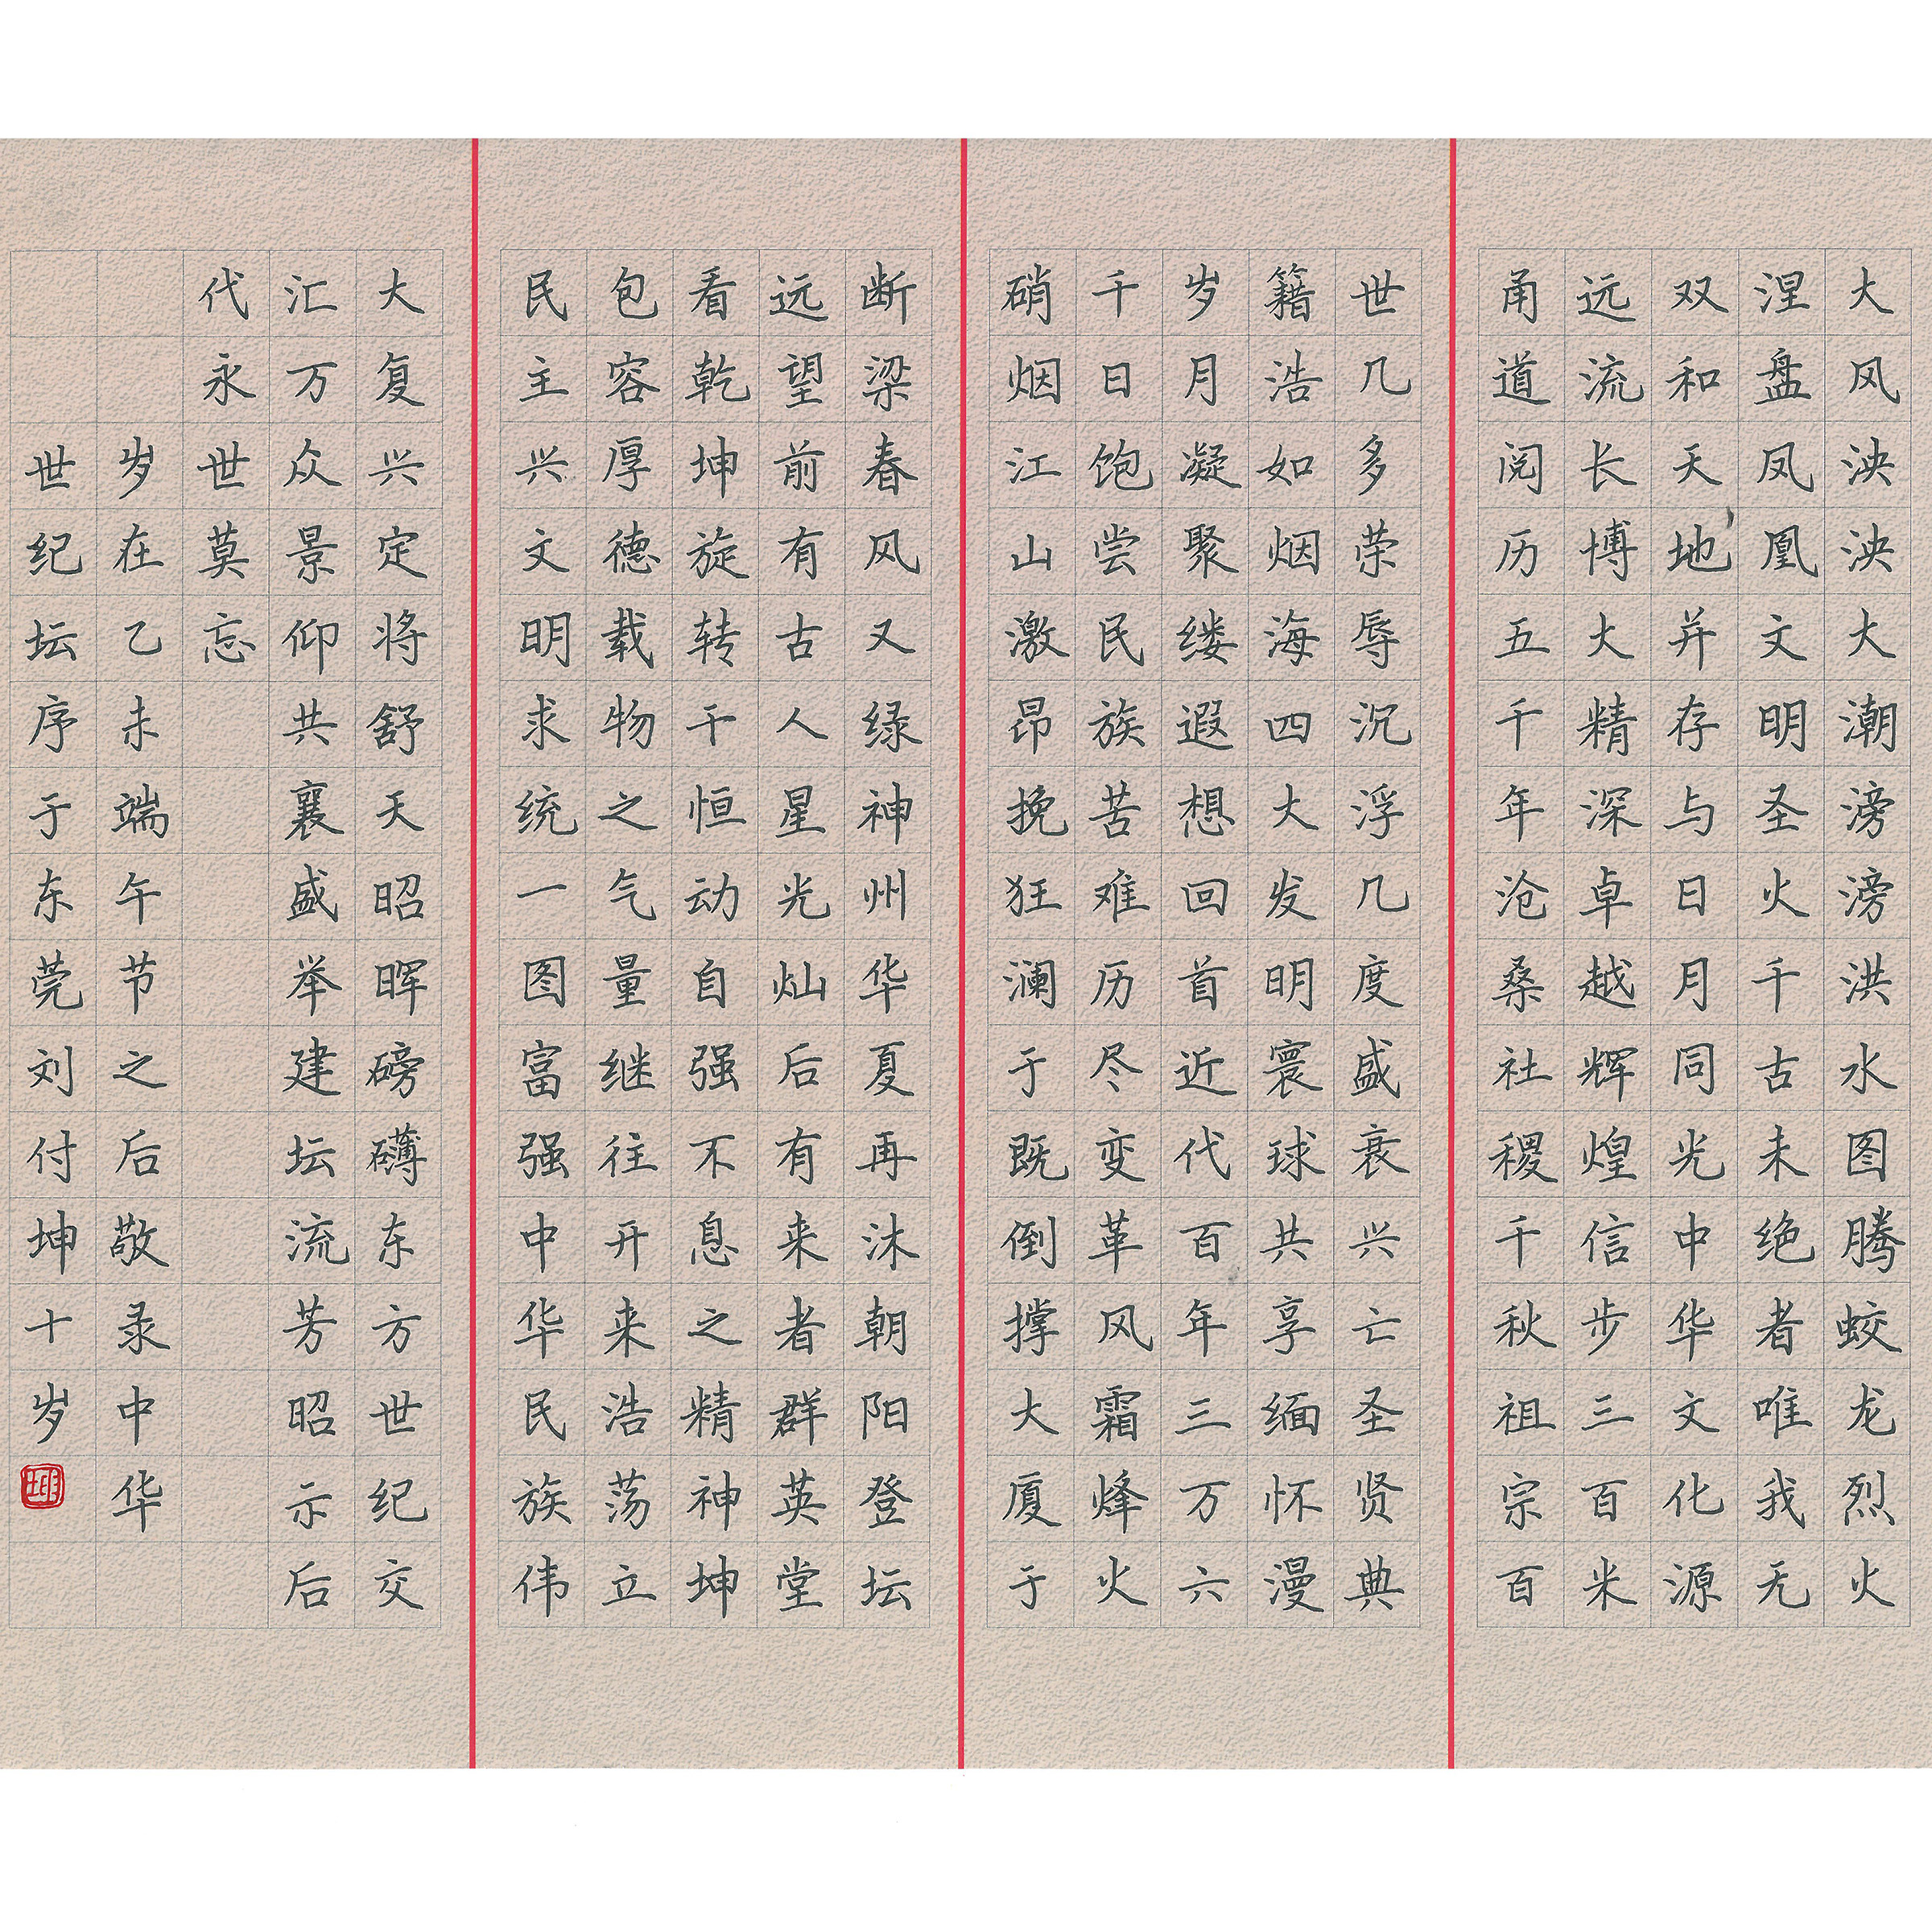 大风泱泱大潮滂滂洪水图腾蛟龙烈火
涅盘凤凰文明圣火千古未绝者唯我无
双和天地并存与日月同光中华文化源
远流长博大精深卓越辉煌信步三百米
甬道阅历五千年沧桑社稷千秋祖宗百
世几多荣辱沉浮几度盛衰兴亡圣贤典
籍浩如烟海四大发明寰球共享缅怀漫
岁月凝聚缕遐想回首近代百年三万六
千日饱尝民族苦难历尽变革风霜烽火
硝烟江山激昂挽狂澜于既倒撑大厦于
断梁春风又绿神州华夏再沐朝阳登坛
远望前有古人星光灿后有来者群英堂
看乾坤旋转干恒动自强不息之精神坤
包容厚德载物之气量继往开来浩荡立
民主兴文明求统一图富强中华民族伟
大复兴定将舒天昭晖磅礴东方世纪交
汇万众景仰共襄盛举建坛流芳昭示后
代永世莫忘
岁在乙未端午节之后敬录中华
世纪坛序于东莞刘付坤十岁
坤